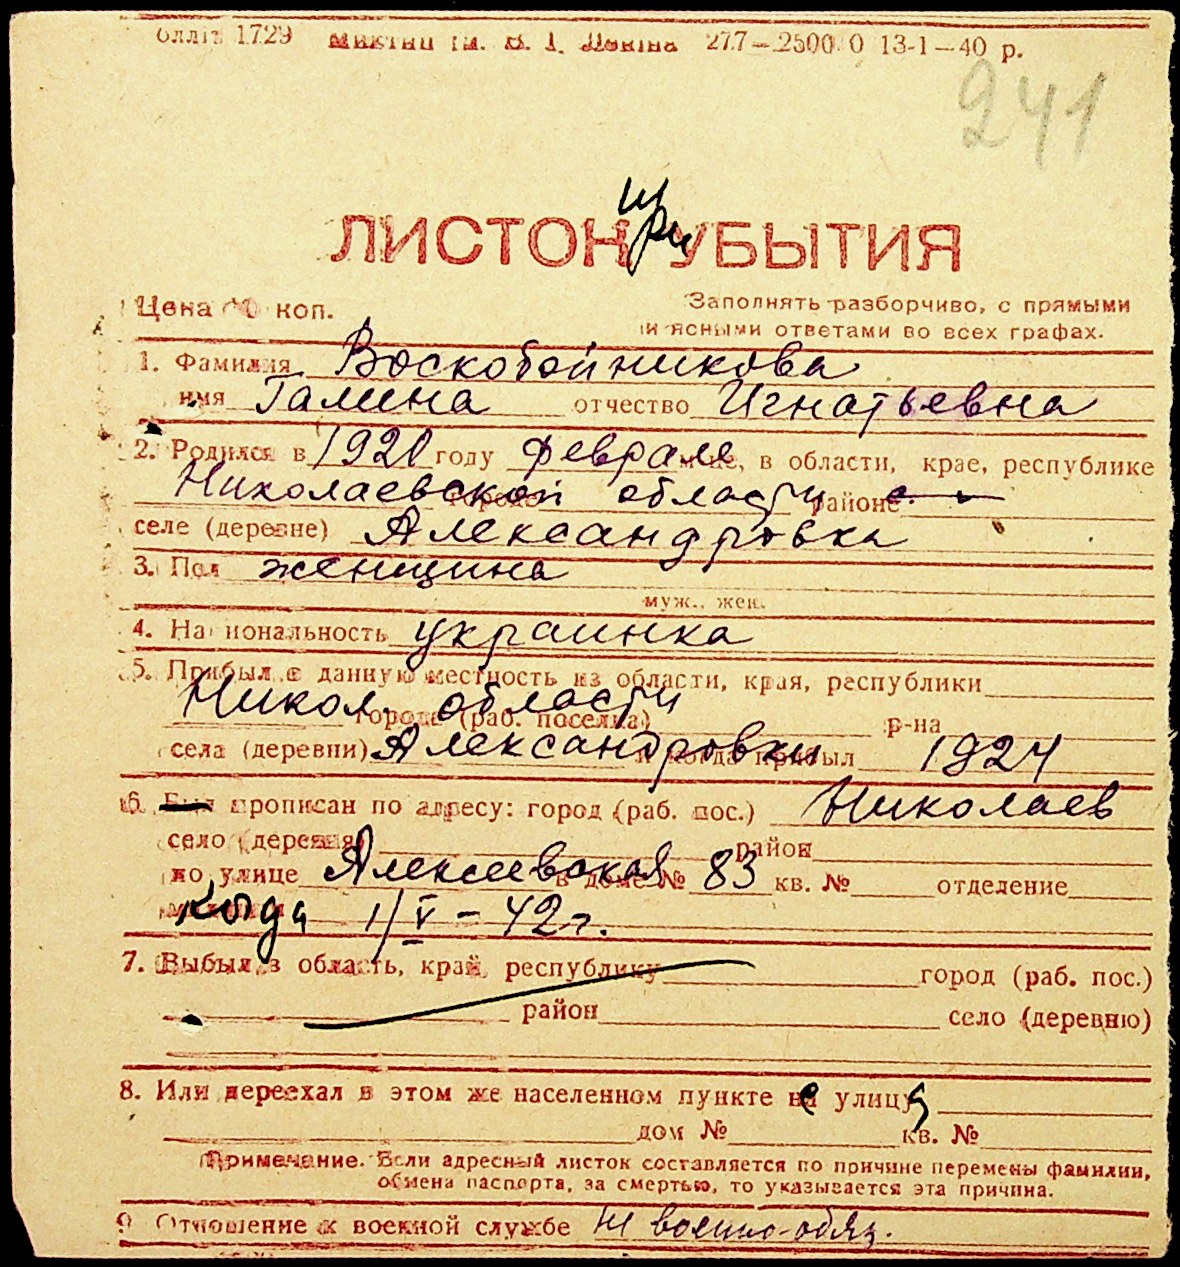 1729 им. В. І. Леніна 277—2500 0 13-1—40 р.
241
ЛИСТОК при УБЫТИЯ
Цена коп.
Заполнять разборчиво, с прямыми
и ясными ответами во всех графах.
1. Фамилия Воскобойникова
имя Галина отчество Игнатьевна
2. Родился в 1920 году феврале м-це, в области, крае, республике
Николаевской области городе районе
селе (деревне) Александровка
3. Пол женщина
муж., жен.
4. Национальность украинка
5. Прибыл в данную местность из области, края, республики
Никол. области города (раб. поселка) р-на
села (деревни) Александровки и когда прибыл 1924
6. Был прописан по адресу: город (раб. пос.) Николаев
село (деревня) район
по улице Алексеевская в доме № 83 кв. № отделение
когда 1/V – 42 г.
7. Выбыл в область, край, республику город (раб. пос.)
район село (деревню)
8. Или переехал в этом же населенном пункте не улицу
дом № кв. №
Примечание. Если адресный листок составляется по причине перемены фамилии,
обмена паспорта, за смертью, то указывается эта причина.
9 Отношение к военной службе военно-обяз.